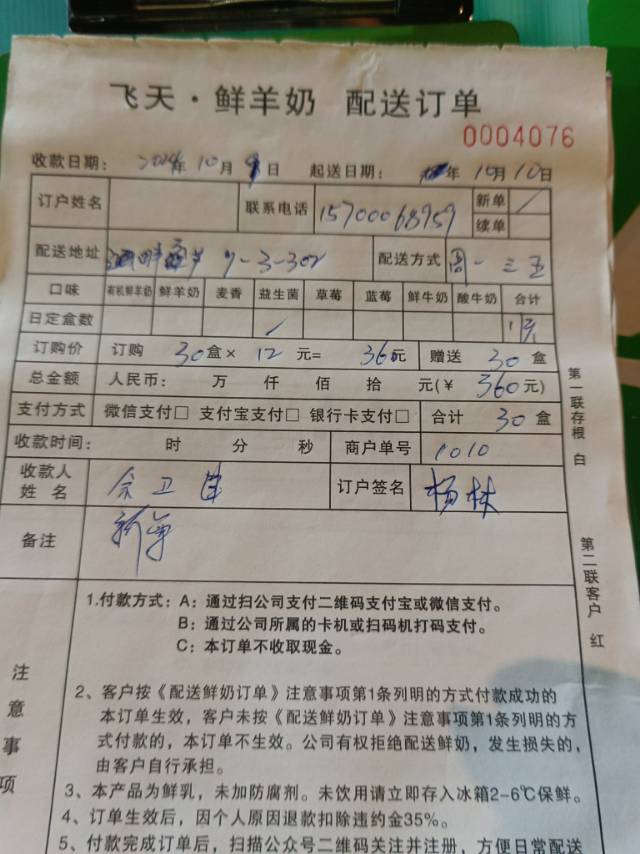 飞天·鲜羊奶 配送订单
0004076
收款日期: 2024年10月9日 起送日期: 年10月10日
订户姓名 联系电话 15700068959 新单 /
续单
配送地址 7-3-302 配送方式 周一三五
口味 有机鲜羊奶 鲜羊奶 麦香 益生菌 草莓 蓝莓 鲜牛奶 酸牛奶 合计
日定盒数 /
订购价 订购 30盒× 12元= 360元 赠送 30盒
总金额 人民币: 万 仟 佰 拾 元(¥ 360元)
支付方式 微信支付□ 支付宝支付□ 银行卡支付□ 合计 30盒
收款时间: 时 分 秒 商户单号 1010
收款人姓名 订户签名 杨林
备注 新单
第一联存根 白
第二联客户 红
注意事项
1.付款方式: A: 通过扫公司支付二维码支付宝或微信支付。
B: 通过公司所属的卡机或扫码机打码支付。
C: 本订单不收取现金。
2、客户按《配送鲜奶订单》注意事项第1条列明的方式付款成功的
本订单生效,客户未按《配送鲜奶订单》注意事项第1条列明的方
式付款的,本订单不生效。公司有权拒绝配送鲜奶,发生损失的,
由客户自行承担。
3、本产品为鲜乳,未加防腐剂。未饮用请立即存入冰箱2-6℃保鲜。
4、订单生效后,因个人原因退款扣除违约金35%。
5、付款完成订单后,扫描公众号二维码关注并注册,方便日常配送